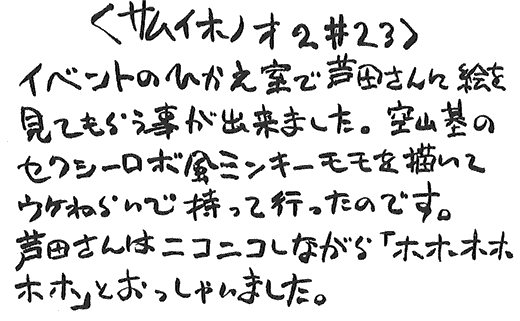 〈サムイホノオ2#23〉
イベントのひかえ室で芦田さんに絵を
見てもらう事が出来ました。空山基の
セクシーロボ風ミンキーモモを描いて
ウケねらいで持って行ったのです。
芦田さんはニコニコしながら「ホホホホ
ホホ」とおっしゃいました。